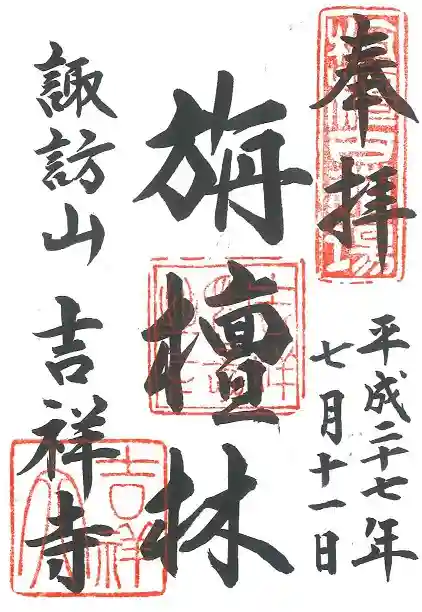 奉拝
平成二十七年
七月十一日
旃檀林
諏訪山 吉祥寺
吉祥